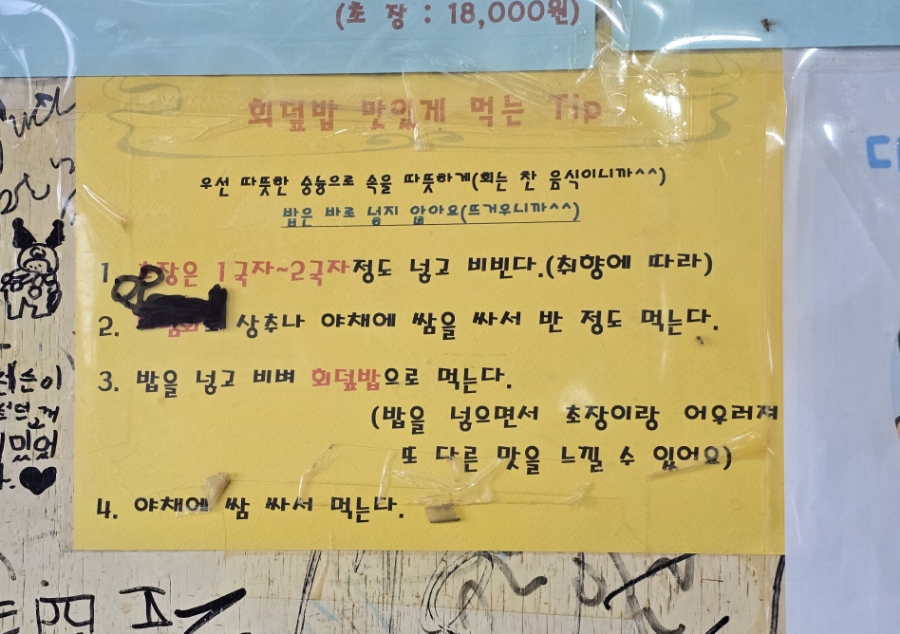 (초 장 : 18,000원)
회덮밥 맛있게 먹는 Tip
우선 따뜻한 숭늉으로 속을 따뜻하게(회는 찬 음식이니까^^)
밥은 바로 넣지 않아요(뜨거우니까^^)
1. 초장은 1국자~2국자정도 넣고 비빈다.(취향에 따라)
2. 상추나 야채에 쌈을 싸서 반 정도 먹는다.
3. 밥을 넣고 비벼 회덮밥으로 먹는다.
(밥을 넣으면서 초장이랑 어우러져
또 다른 맛을 느낄 수 있어요)
4. 야채에 쌈 싸서 먹는다.